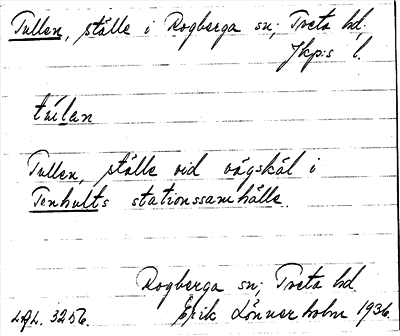 Tullen, ställe i Rogberga sn, Tveta hd,
Jkp:s l.
tu̇lan
Tullen, ställe vid vägskäl i
Tenhults stationssamhälle.
Rogberga sn, Tveta hd.
LAL. 3256. Erik Lönnerholm 1936.